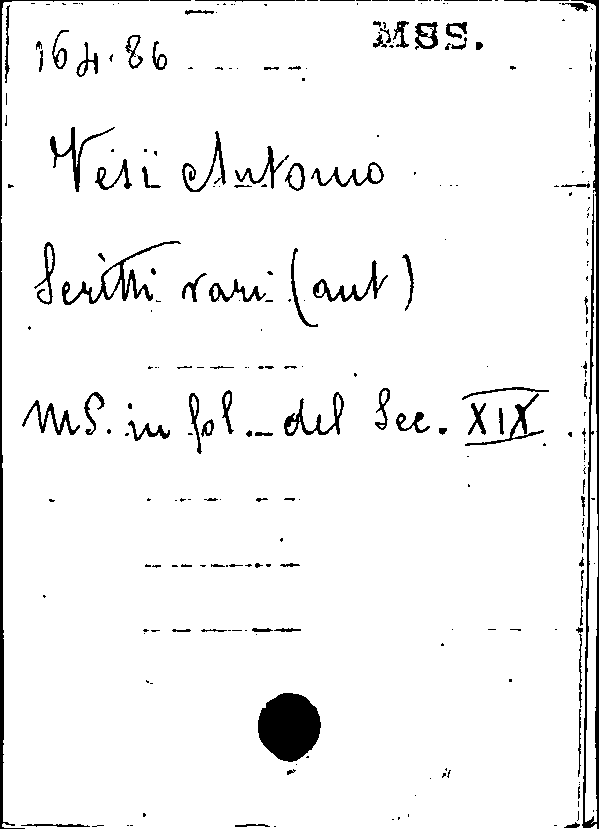 164.86 MSS.
Vesi Antonio
Scritti vari (aut)
MS. in fol. _ del Sec. XIX